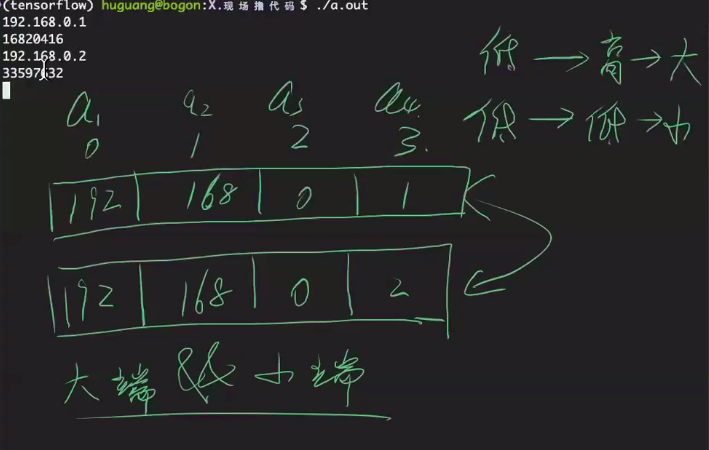 (tensorflow) huguang@bogon:X.现场撸代码$ ./a.out
192.168.0.1
16820416
192.168.0.2
33597632
低→高→大
a1 a2 a3 a4
低→低→小
0 1 2 3.
192 168 0 1
192 168 0 2
大端&小端